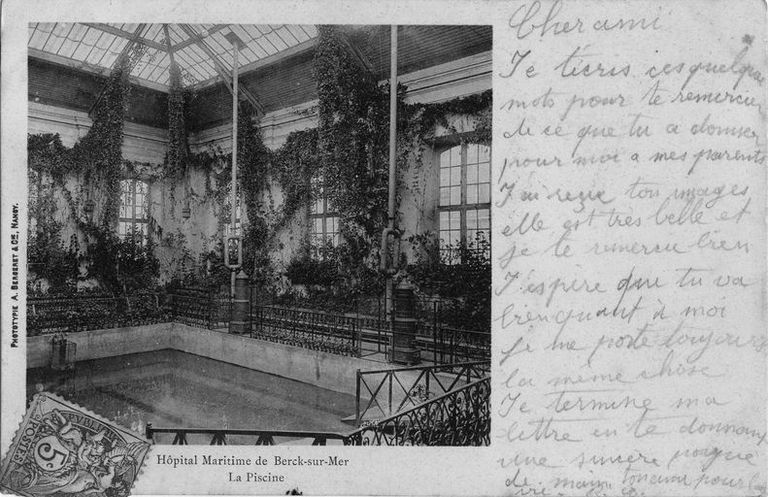 PHOTOTYPIE A. BERGERET & Cie, NANCY.
Hôpital Maritime de Berck-sur-Mer
La Piscine
POSTES
5c
Cher ami
Je t'écris ces quelque
mots pour te remercier
de ce que tu a donner
pour moi a mes parents
J'ai reçue ton images
elle est tres belle et
je te remercie bien
J'espère que tu va
bien quant à moi
je me porte toujours
la même chose
Je termine ma
lettre en te donnant
une sincère poignée
de main ton ami pour la